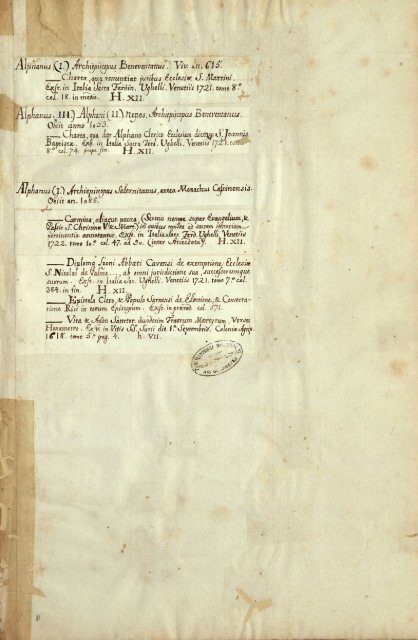 Alphanus (I.) Archiepiscopus Beneventanus. Viv. an. 615.
—— Charta, qua renuntiat juribus Ecclesiæ S. Martini.
Exst. in Italia Sacra Ferdin. Ughelli. Venetiis 1721. tomo 8.º
col. 18. in medio. H. XII.
Alphanus III) Alphani (II) nepos, Archiepiscopus Beneventanus.
Obiit anno
—— Charta, qua dat Alphano Clerico Ecclesiam dictam S. Joannis
Baptistæ. Exst. in Italia Sacra Ferd. Ughelli. Venetiis 1721. tomo
8.º col. 74. prope fin. H. XII.
Alphanus (I.) Archiepiscopus Salernitanus, antea Monachus Casinensis.
Obiit an. 1086.
—— Carmina, aliaque pauca, (Sermo nempe super Evangelium, &
Passio S. Christinæ V. & Mart.) in quibus multa ad sacram historiam
pertinentia annotantur. Exst. in Italia Sacr. Ferd. Ughelli. Venetiis
1722. tomo 10.º col. 47. ad 90. (inter Anecdota). H. XII.
—— Diploma Leoni Abbati Cavensi de exemptione Ecclesiæ
S. Nicolai de Palma..., ab omni jurisdictione sua, successorumque
suorum. Exst. in Italia Sac. Ughelli. Venetiis 1721. tomo 7.º col.
384. in fin. H. XII.
—— Epistola Clero, & Populo Sarnensi de Electione, & Consecra-
tione Risi in eorum Episcopum. Exst. in præced. col. 571.
—— Vita & Actus Sanctor. duodecim Fratrum Martyrum, Versu
Hexametro. Exst. in Vitis SS. Surii die 1.ª Septembris. Coloniæ Agrip.
1618. tomo 5.º pag. 4. h. VII.